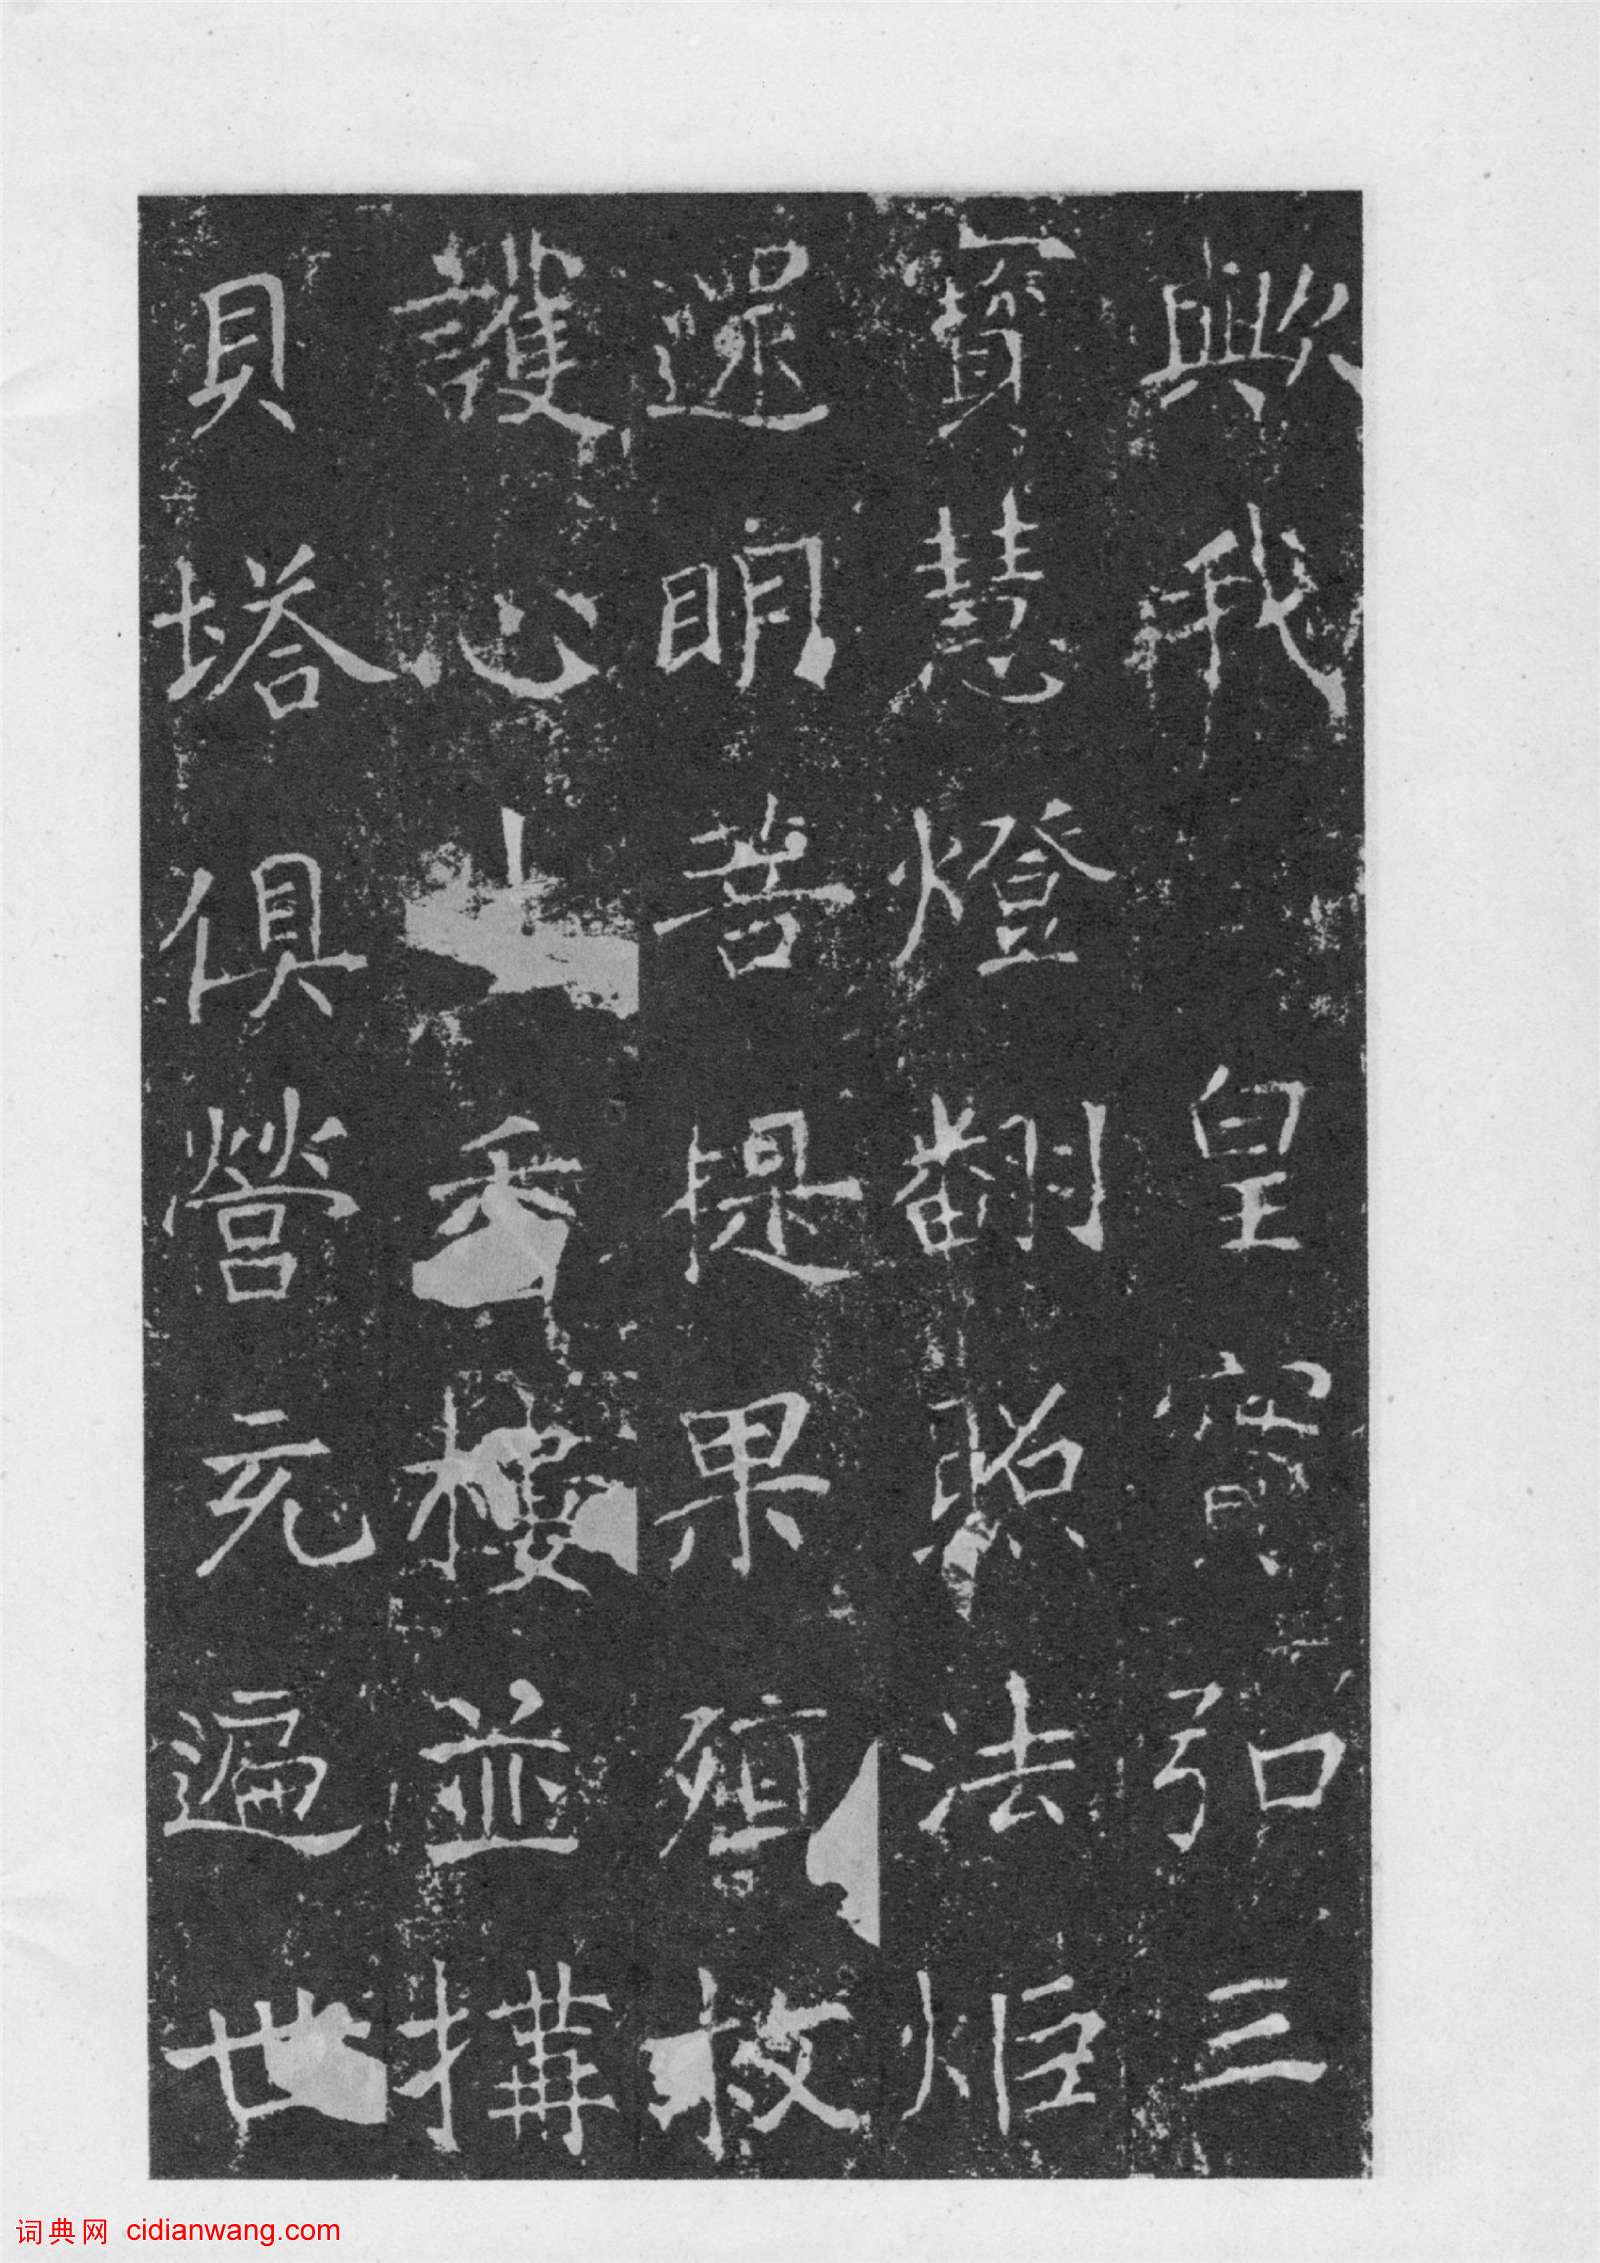 歟我皇弘三
寶慧燈翻照法炬
還明菩提果殖救
護心香樓並搆
貝塔俱營充遍世
词典网 cidianwang.com